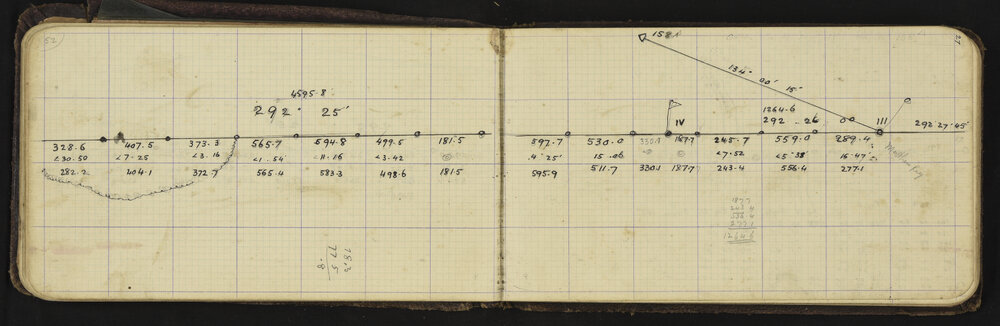 52
4595.8
292° 25'
328.6 407.5 373.3 565.7 594.8 499.5 181.5
<30.50 <7.25 <3.16 <1.54 <11.16 <3.42
282.2 404.1 372.7 565.4 583.3 498.6 181.5
78.3
77.5
.8
27
158
134° 00' 15"
1264.6
IV 292 .. 26 00 III 292° 27' 45"
597.7 530.0 330.1 187.7 245.7 559.0 289.4
4° 25' 15.06 <7.52 <5°38' 16.47
595.9 511.7 330.1 187.7 243.4 556.4 277.1
187.7
243.4
556.4
277.1
1264.6